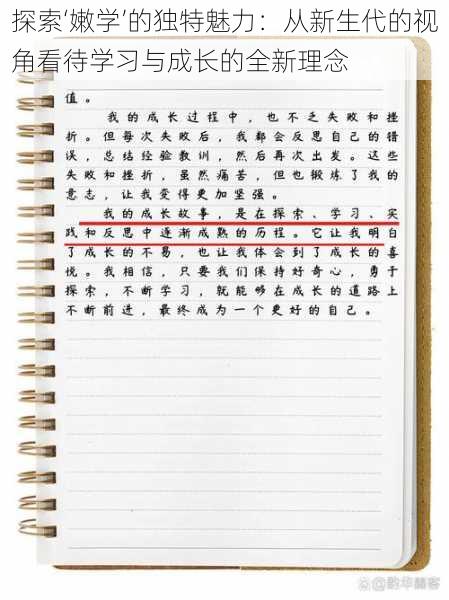 探索‘嫩学’的独特魅力：从新生代的视
角看待学习与成长的全新理念
值。
我的成长过程中，也不乏失败和挫
折。但每次失败后，我都会反思自己的错
误，总结经验教训，然后再次出发。这些
失败和挫折，虽然痛苦，但也锻炼了我的
意志，让我变得更加坚强。
我的成长故事，是在探索、学习、实
践和反思中逐渐成熟的历程。它让我明白
了成长的不易，也让我体会到了成长的喜
悦。我相信，只要我们保持好奇心，勇于
探索，不断学习，就能够在成长的道路上
不断前进，最终成为一个更好的自己。